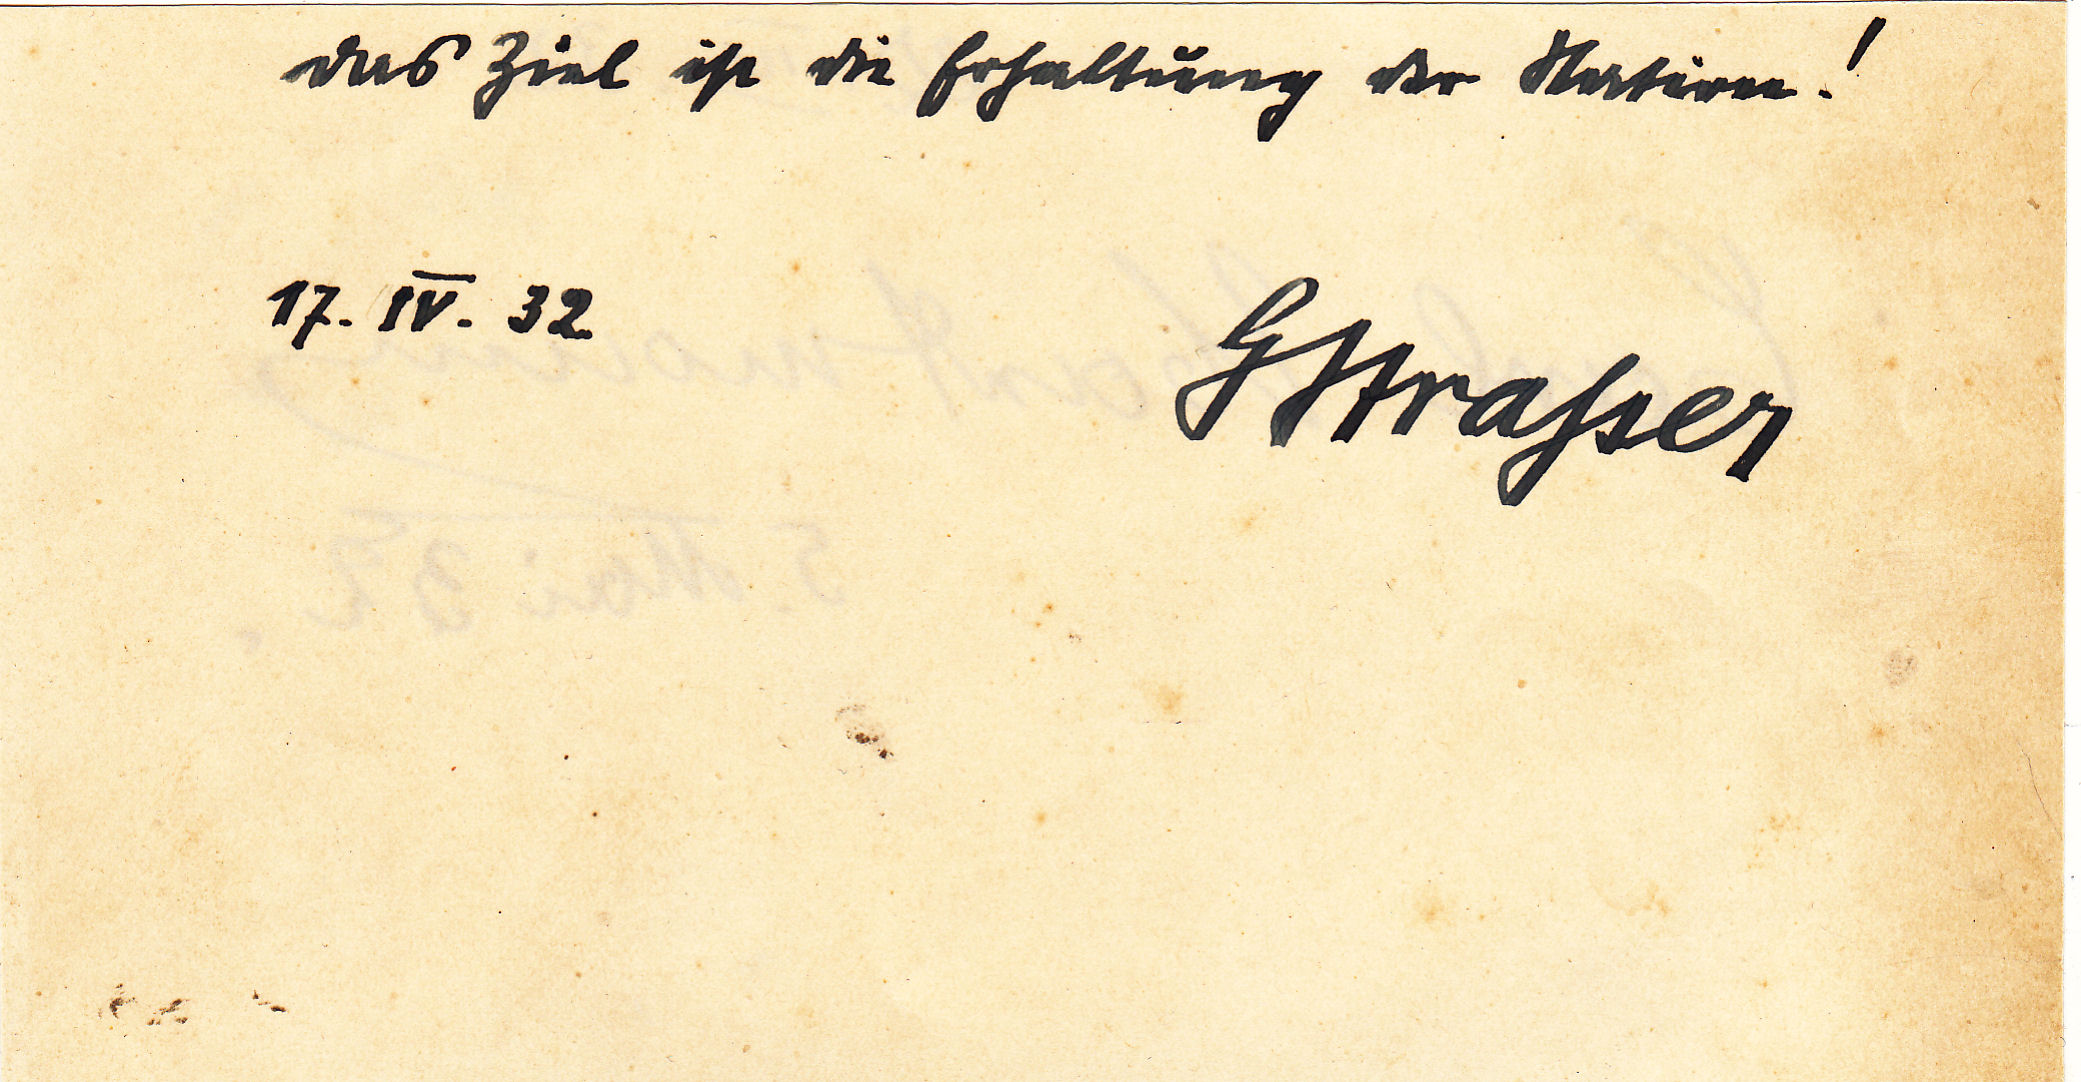 das Ziel ist die Erhaltung der Nation!
17. IV. 32
GStrasser
5. Mai 32.